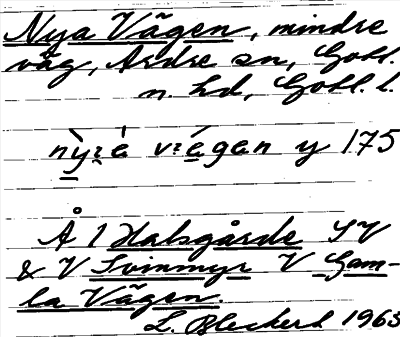 Nya Vägen, mindre
väg, Ardre sn, Gotl.
n. hd, Gotl. l.
vägan y 175
Å 1 Halsgårde SV
& V Svinmyr V Gam-
la Vägen.
L. Bleckert 1963